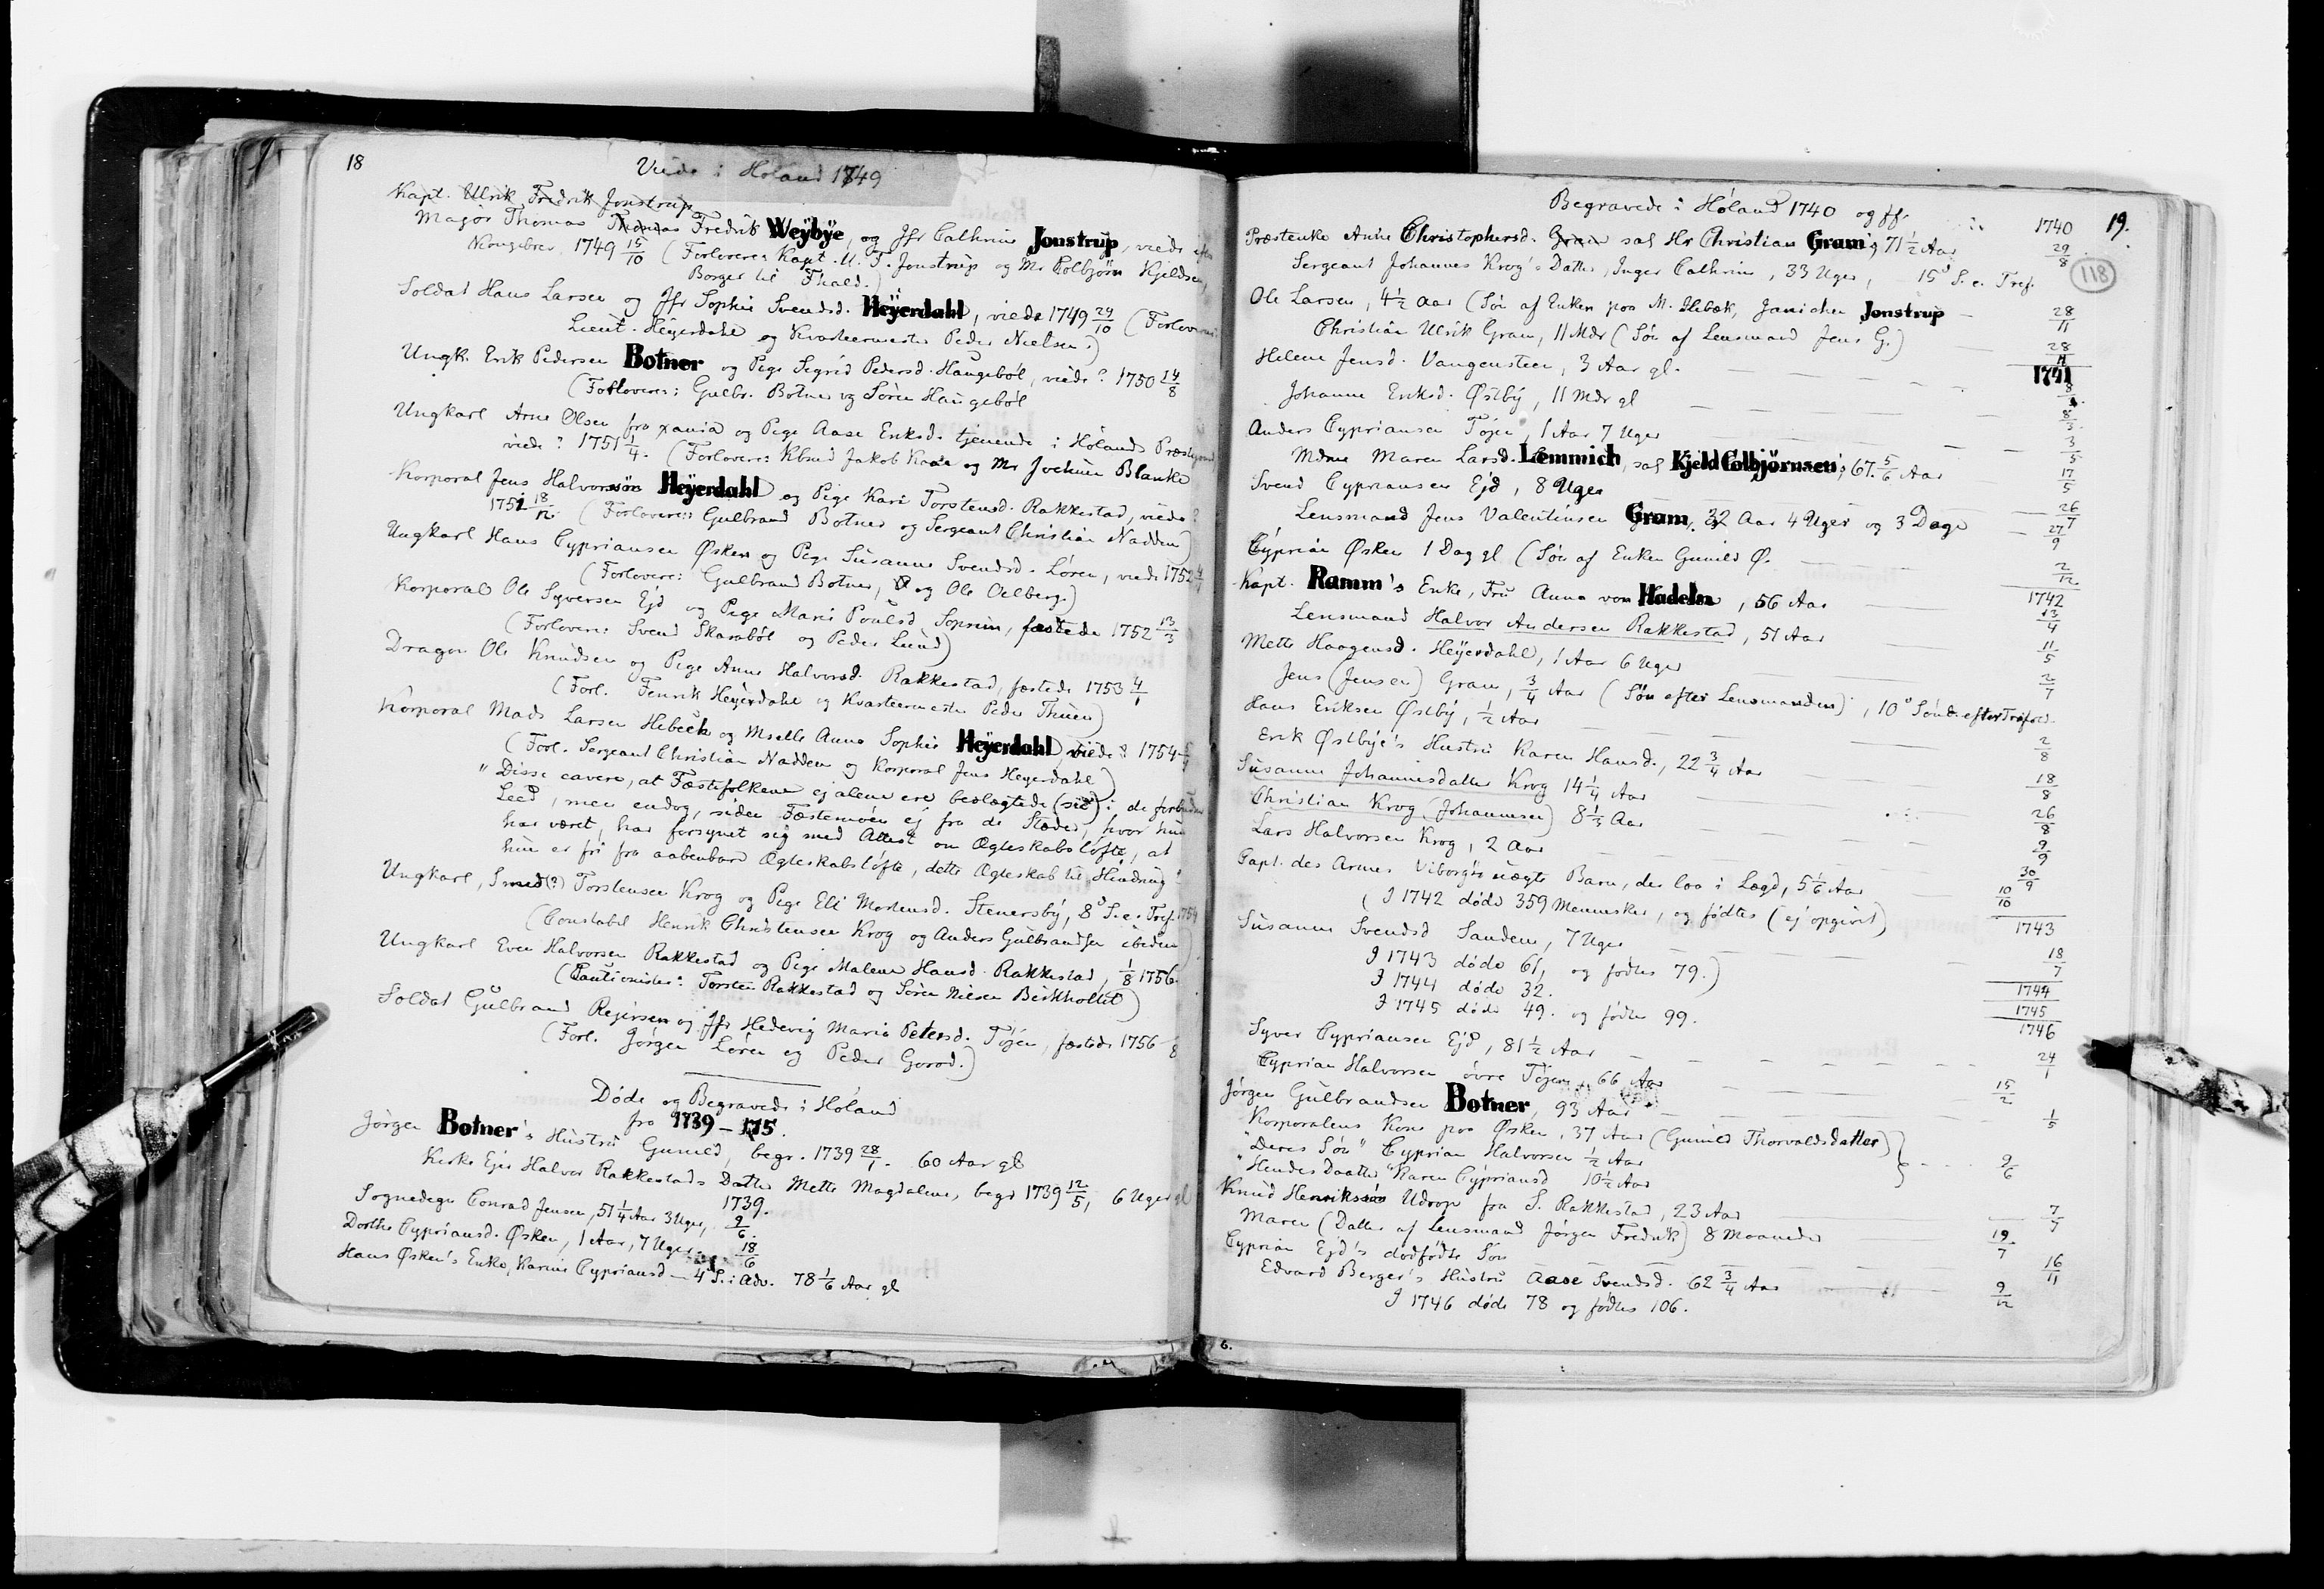 18
Viede i Höland 1749
Kapt. Ulrik Fredrik Jonstrup
Majör Thomas Thomas Fredrik Weÿbÿe, og Jfr Cathrine Jonstrup, viede efter
Kongebrev 1749 15/10 (Forlovere: Kapt. U. F. Jonstrup og Mr Colbjörn Kjeldsen,
Borger til Fhald.)
Soldat Hans Larsen og Jfr Sophie Svendsd. Heÿerdahl, viede 1749 29/10 (Forlovere:
Lieut. Heyerdahl og Kvarteermester Peder Nielsen.)
Ungk. Erik Pedersen Botner og Pige Sigrid Pedersd. Haugeböl, viede? 1750 14/8
(Forlovere: Gulbr. Botner og Sören Haugeböl
Ungkarl Arne Olsen fra xania og Pige Aase Eriksd. tjenende i Hölands Præstegaard
viede? 1751 1/4. (Forlovere: Kbmd Jakob Kaae og Mr Jochum Blanke
Korporal Jens Halvorssön Heÿerdahl og Pige Kari Torstensd. Rakkestad, viede?
1751 18/12 (Forlovere: Gulbrand Botner og Sergeant Christian Nadden)
Ungkarl Hans Cypriansen Øsken og Pige Susanne Svendsd. Lören, viede 1752 4/4
(Forlovere: Gulbrand Botner, og Ole Aelberg.)
Korporal Ole Syversen Ejd og Pige Mari Poulsd Soprim, fæstede 1752 13/3
(Forlovere: Svend Skaraböl og Peder Lund)
Dragon Ole Knudsen og Pige Anne Halvorsd. Rakkestad, fæstede 1753 4/1
(Forl. Fenrik Heyerdahl og Kvarteermester Peder Thuen)
Korporal Mads Larsen Hebeck og Mselle Anna Sophie Heÿerdahl, viede? 1754
(Forl. Sergeant Christian Nadden og Korporal Jens Heyerdahl)
"Disse cavere, at Fæstefolkene ej alene ere beslægtede (sic) i de forbudne
Leed, men endog, siden Fæstemöen ej fra de Stæder, hvor hun
har været, har forsynet sig med Attest om Ægteskabslöfte, at
hun er fri fra aabenbare Ægteskabslöfte, dette Ægteskab til Hindring"
Ungkarl, Smed(?) Torstensen Krog og Pige Eli Mortensd. Stenersbÿ, 8de S. e. Tref. 1754
(Constabel Henrik Christensen Krog og Anders Gulbrandsen ibidem)
Ungkarl Even Halvorsen Rakkestad og Pige Malene Hansd. Rakkestad, 1/8 1756.
(Cautionister: Torsten Rakkestad og Sören Nilsen Birkholtet)
Soldat Gulbrand Rejersen og Jfr Hedevig Maria Petersd. Töjen, fæstede 1756
(Forl. Jörgen Lören og Peder Gorod.)
Döde og Begravede i Höland
fra 1739 – 175 .
Jörgen Botner's Hustru Gunild, begr. 1739 28/1. 60 Aar gl
Kirke Ejer Halvor Rakkestads Datter Mette Magdalene, begr 1739 12/5, 6 Uger gl
1739.
Sognedegn Conrad Jensen, 51 1/4 Aar 3 Uger, 9/6.
Dorthe Cypriansd. Øsken, 1 Aar, 7 Uger 18/6
Hans Øsken's Enke, Karine Cypriansd — 4 S. i Adv. 78 1/6 Aar gl
Begravede i Höland 1740 og ff. 1740 19.
118
Præstenke Anne Christophersd. Gram sal Hr Christian Gram's 71 1/2 Aar 29/8
Sergeant Johannes Krog's Datter, Inger Cathrine, 33 Uger, 15de S. e. Tref.
Ole Larsen, 4 1/2 Aar (Sön af Enken paa M. Hebæk, Janichen Jonstrup — 28/11
Christian Ulrik Gram, 11 Mdr (Sön af Lensmand Jens G.) 28/11
1741
Helene Jensd. Vangensteen, 3 Aar gl.
Johanne Eriksd. Østbÿ, 11 Mdr gl 8/3.
Anders Cypriansen Töjen, 1 Aar 7 Uger 3/5
Mdme Maren Larsd. Lemmich, sal Kjeld Colbjörnsen's, 67 5/6 Aar 17/5
Svend Cypriansen Ejd, 8 Uger 26/7
Lensmand Jens Valentinsen Gram, 32 Aar 4 Uger og 3 Dage 27/9
Cÿprian Øsken 1 Dag gl (Sön af Enken Gunild Ø. 2/12
1742
Kapt. Ramm's Enke, Fru Anna von Hadeln, 56 Aar 13/4
Lensmand Halvor Andersen Rakkestad, 51 Aar 11/5
Mette Haagensd. Heÿerdahl, 1 Aar 6 Uger 2/7
Jens (Jensen) Gram, 3/4 Aar (Sön efter Lensmanden), 10de Sönd. efter Trefold.
Hans Eriksen Østbÿ, 1/2 Aar 2/8
Erik Østbÿe's Hustru Karen Hansd., 22 3/4 Aar 18/8
Susanne Johannisdatter Krog 14 1/4 Aar 26/8
Christian Krog (Johannesen) 8 1/3 Aar 9/9
Lars Halvorsen Krog, 2 Aar 30/9
Capt. des Armes Viborg's uægte Barn, der laa i Lægd, 5 1/6 Aar 10/10
(I 1742 döde 359 Mennesker, og födtes (ej opgivet)
1743
Susanne Svendsd Sandem, 7 Uger 18/7
I 1743 döde 61, og födtes 79.)
I 1744 döde 32. 1744
I 1745 döde 49. og födtes 99. 1745
1746
Syver Cypriansen Ejd, 81 1/2 Aar 24/1
Cyprian Halvorsen övre Töjen, 66 Aar 15/2
Jörgen Gulbrandsen Botner, 93 Aar 1/5
Korporalens Kone paa Øsken, 37 Aar (Gunild Thorvaldsdatter)
"Deres Sön" Cyprian Halvorsen 1/2 Aar 9/6
"Hendes Daatter" Karen Cypriansd 10 1/2 Aar
Knud Henriksön Udrop fra S. Rakkestad, 23 Aar 7/7
Maren (Datter af Lensmand Jörgen Fredrik) 8 Maaneder 19/7
Cyprian Ejd's dödfödte Sön 16/11
Edvard Berger's Hustru Aase Svendsd. 62 3/4 Aar 9/12
I 1746 döde 78 og födtes 106.
6.